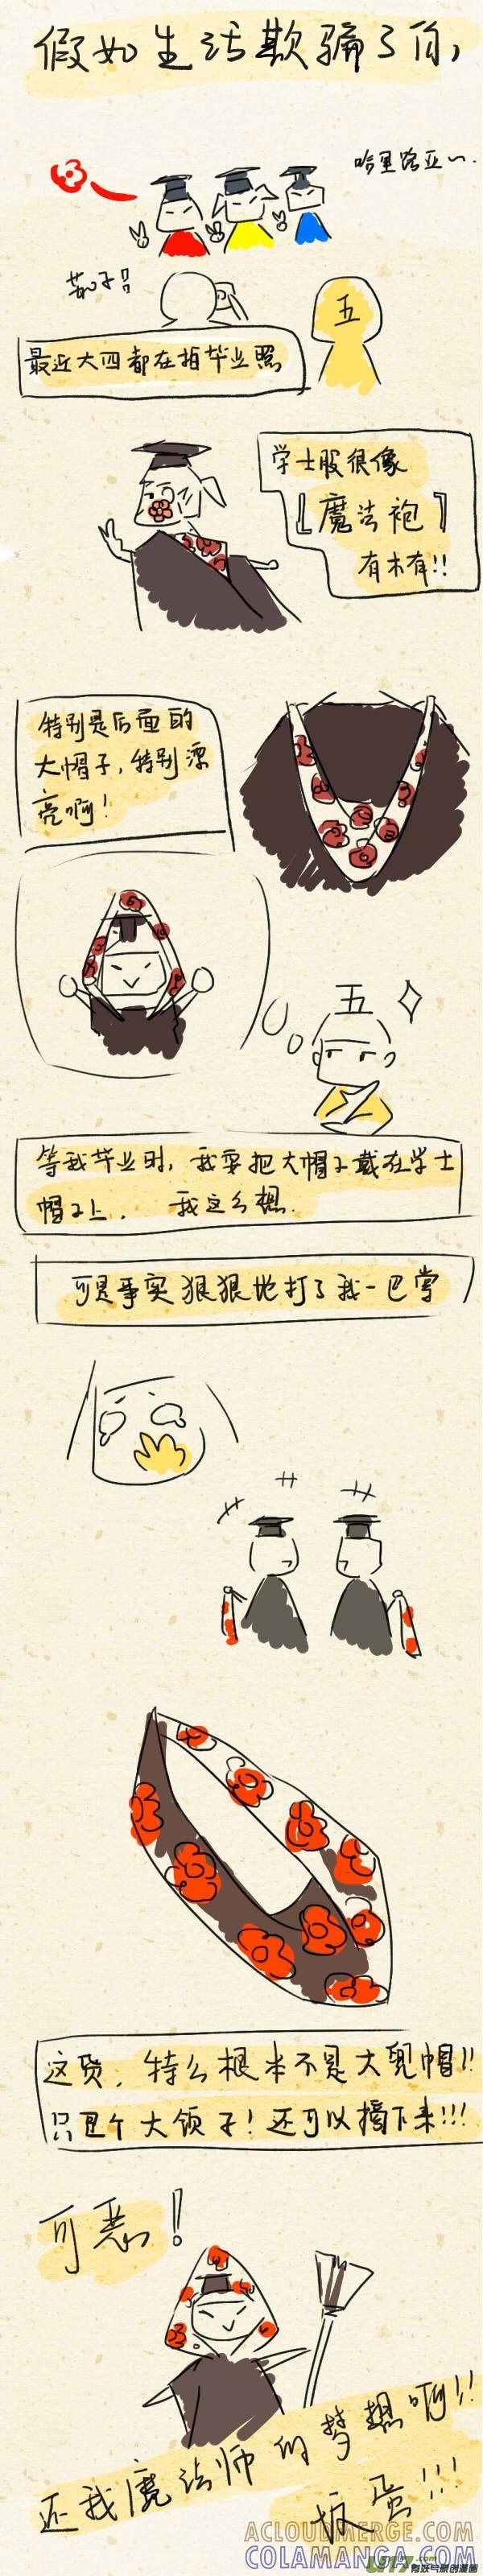 假如生活欺骗了你，
哈里路亚~
茄子!!
五
最近大四都在拍毕业照
学士服很像
『魔法袍』
有木有!!
特别是后面的
大帽子，特别漂
亮啊！
五
等我毕业时，我要把大帽子戴在学士
帽子上，我这么想.
可是事实狠狠地打了我一巴掌
这货，特么根本不是大兜帽!!
只是个大领子！还可以摘下来!!!
可恶！
还我魔法师的梦想啊!!
坏蛋!!!
ACLOUDMERGE.COM
COLAMANGA.COM